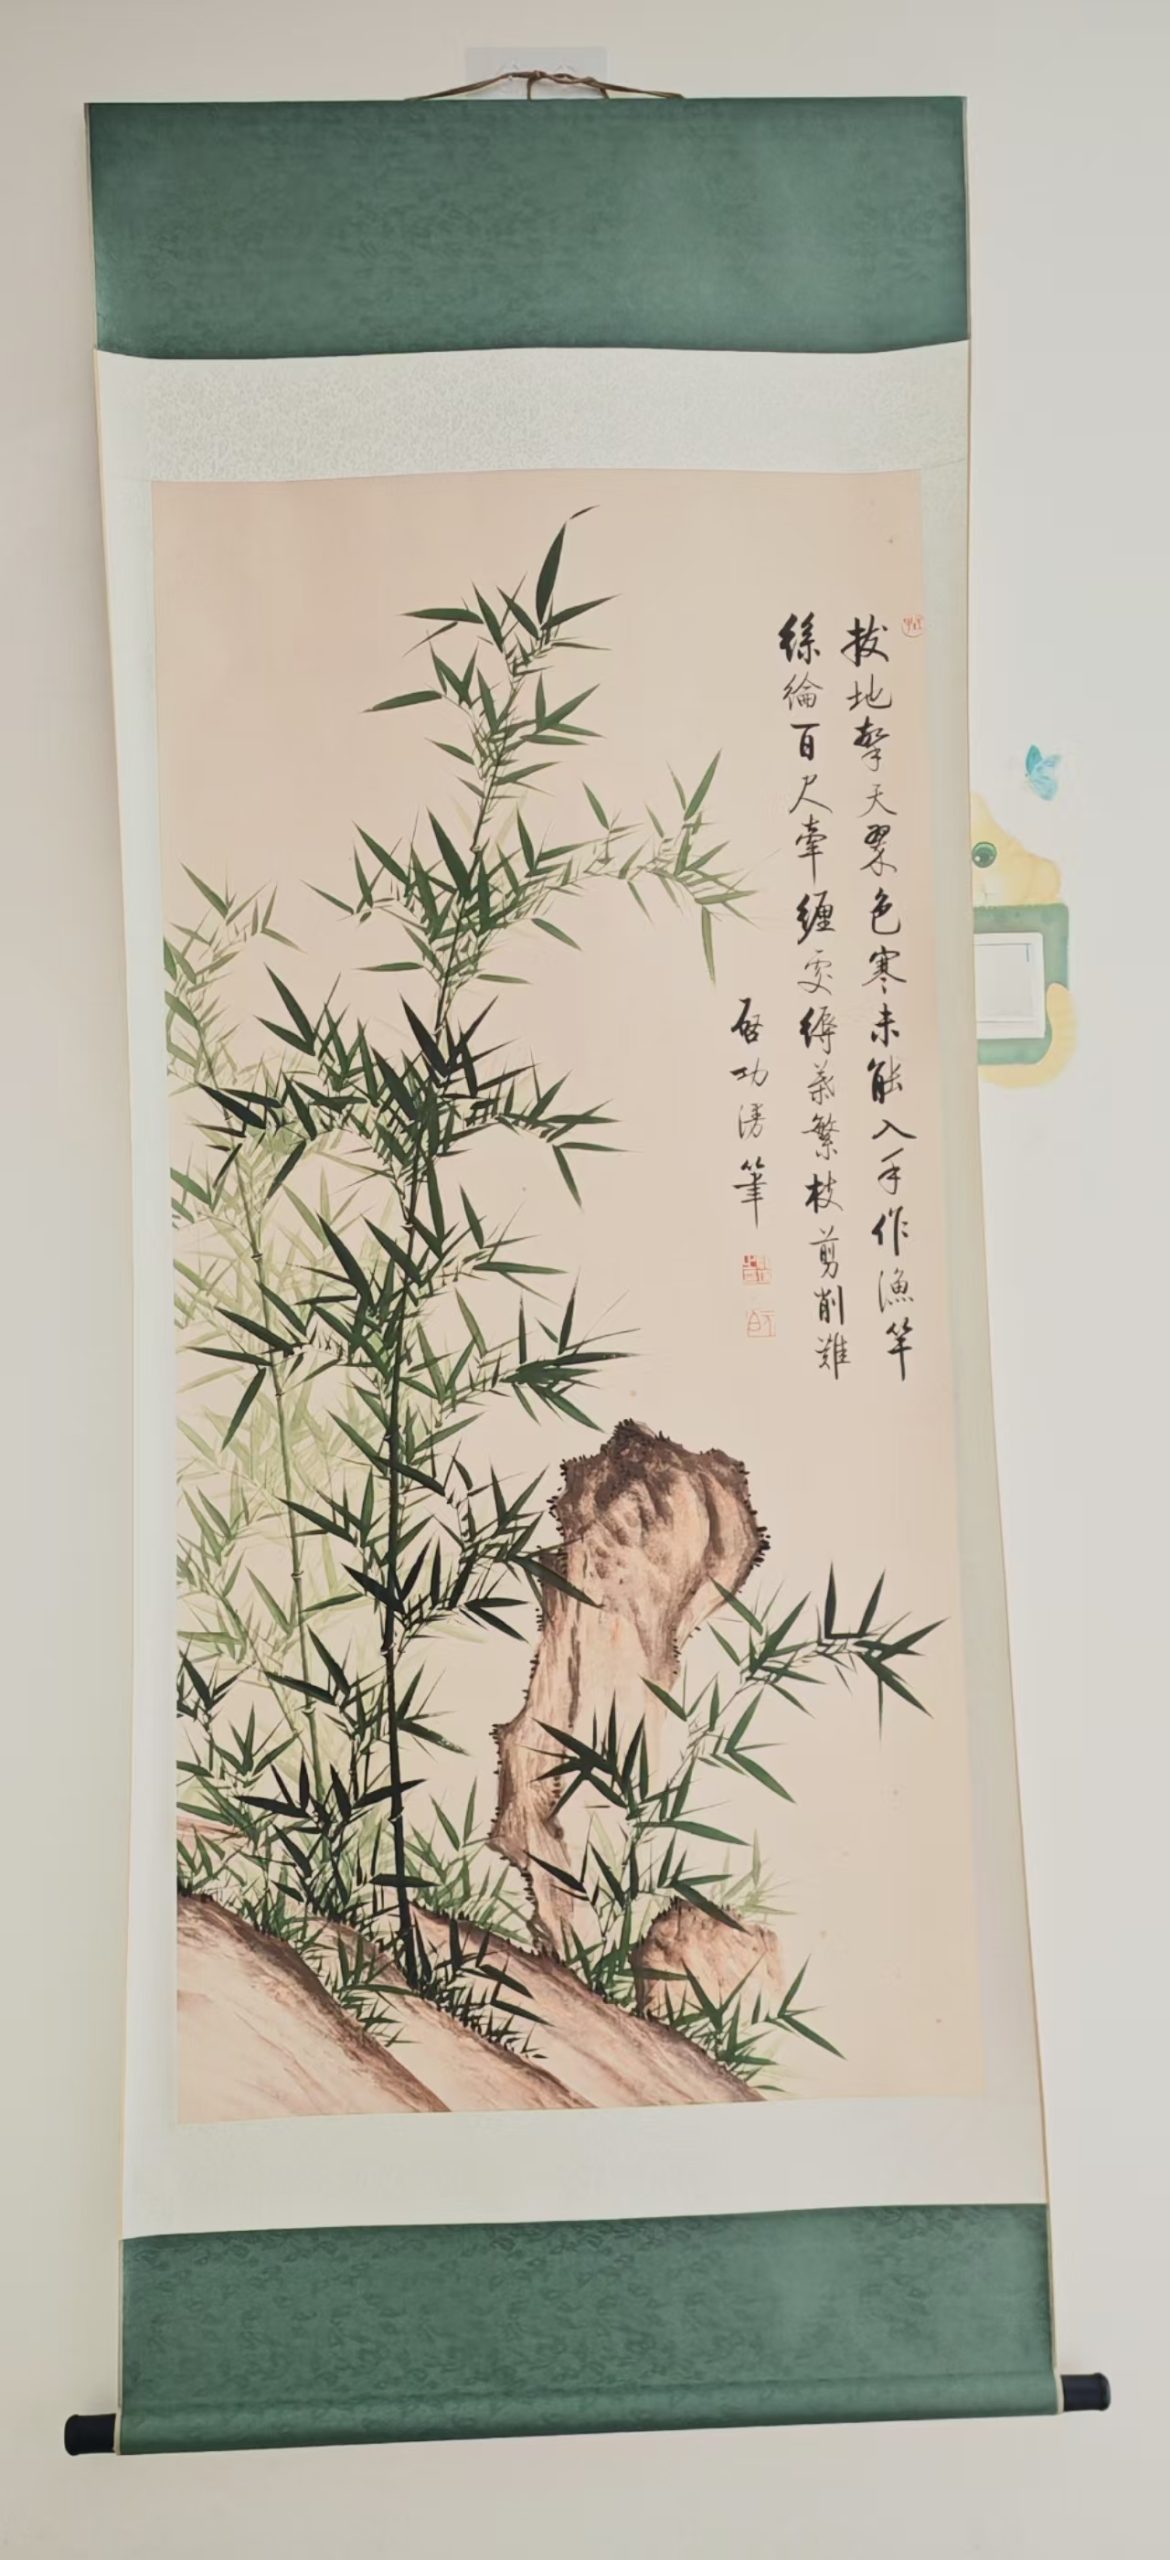 拔地擎天翠色寒未能入手作漁竿
絲綸百尺牽纏處縟葉繁枝剪削難
启功漫筆